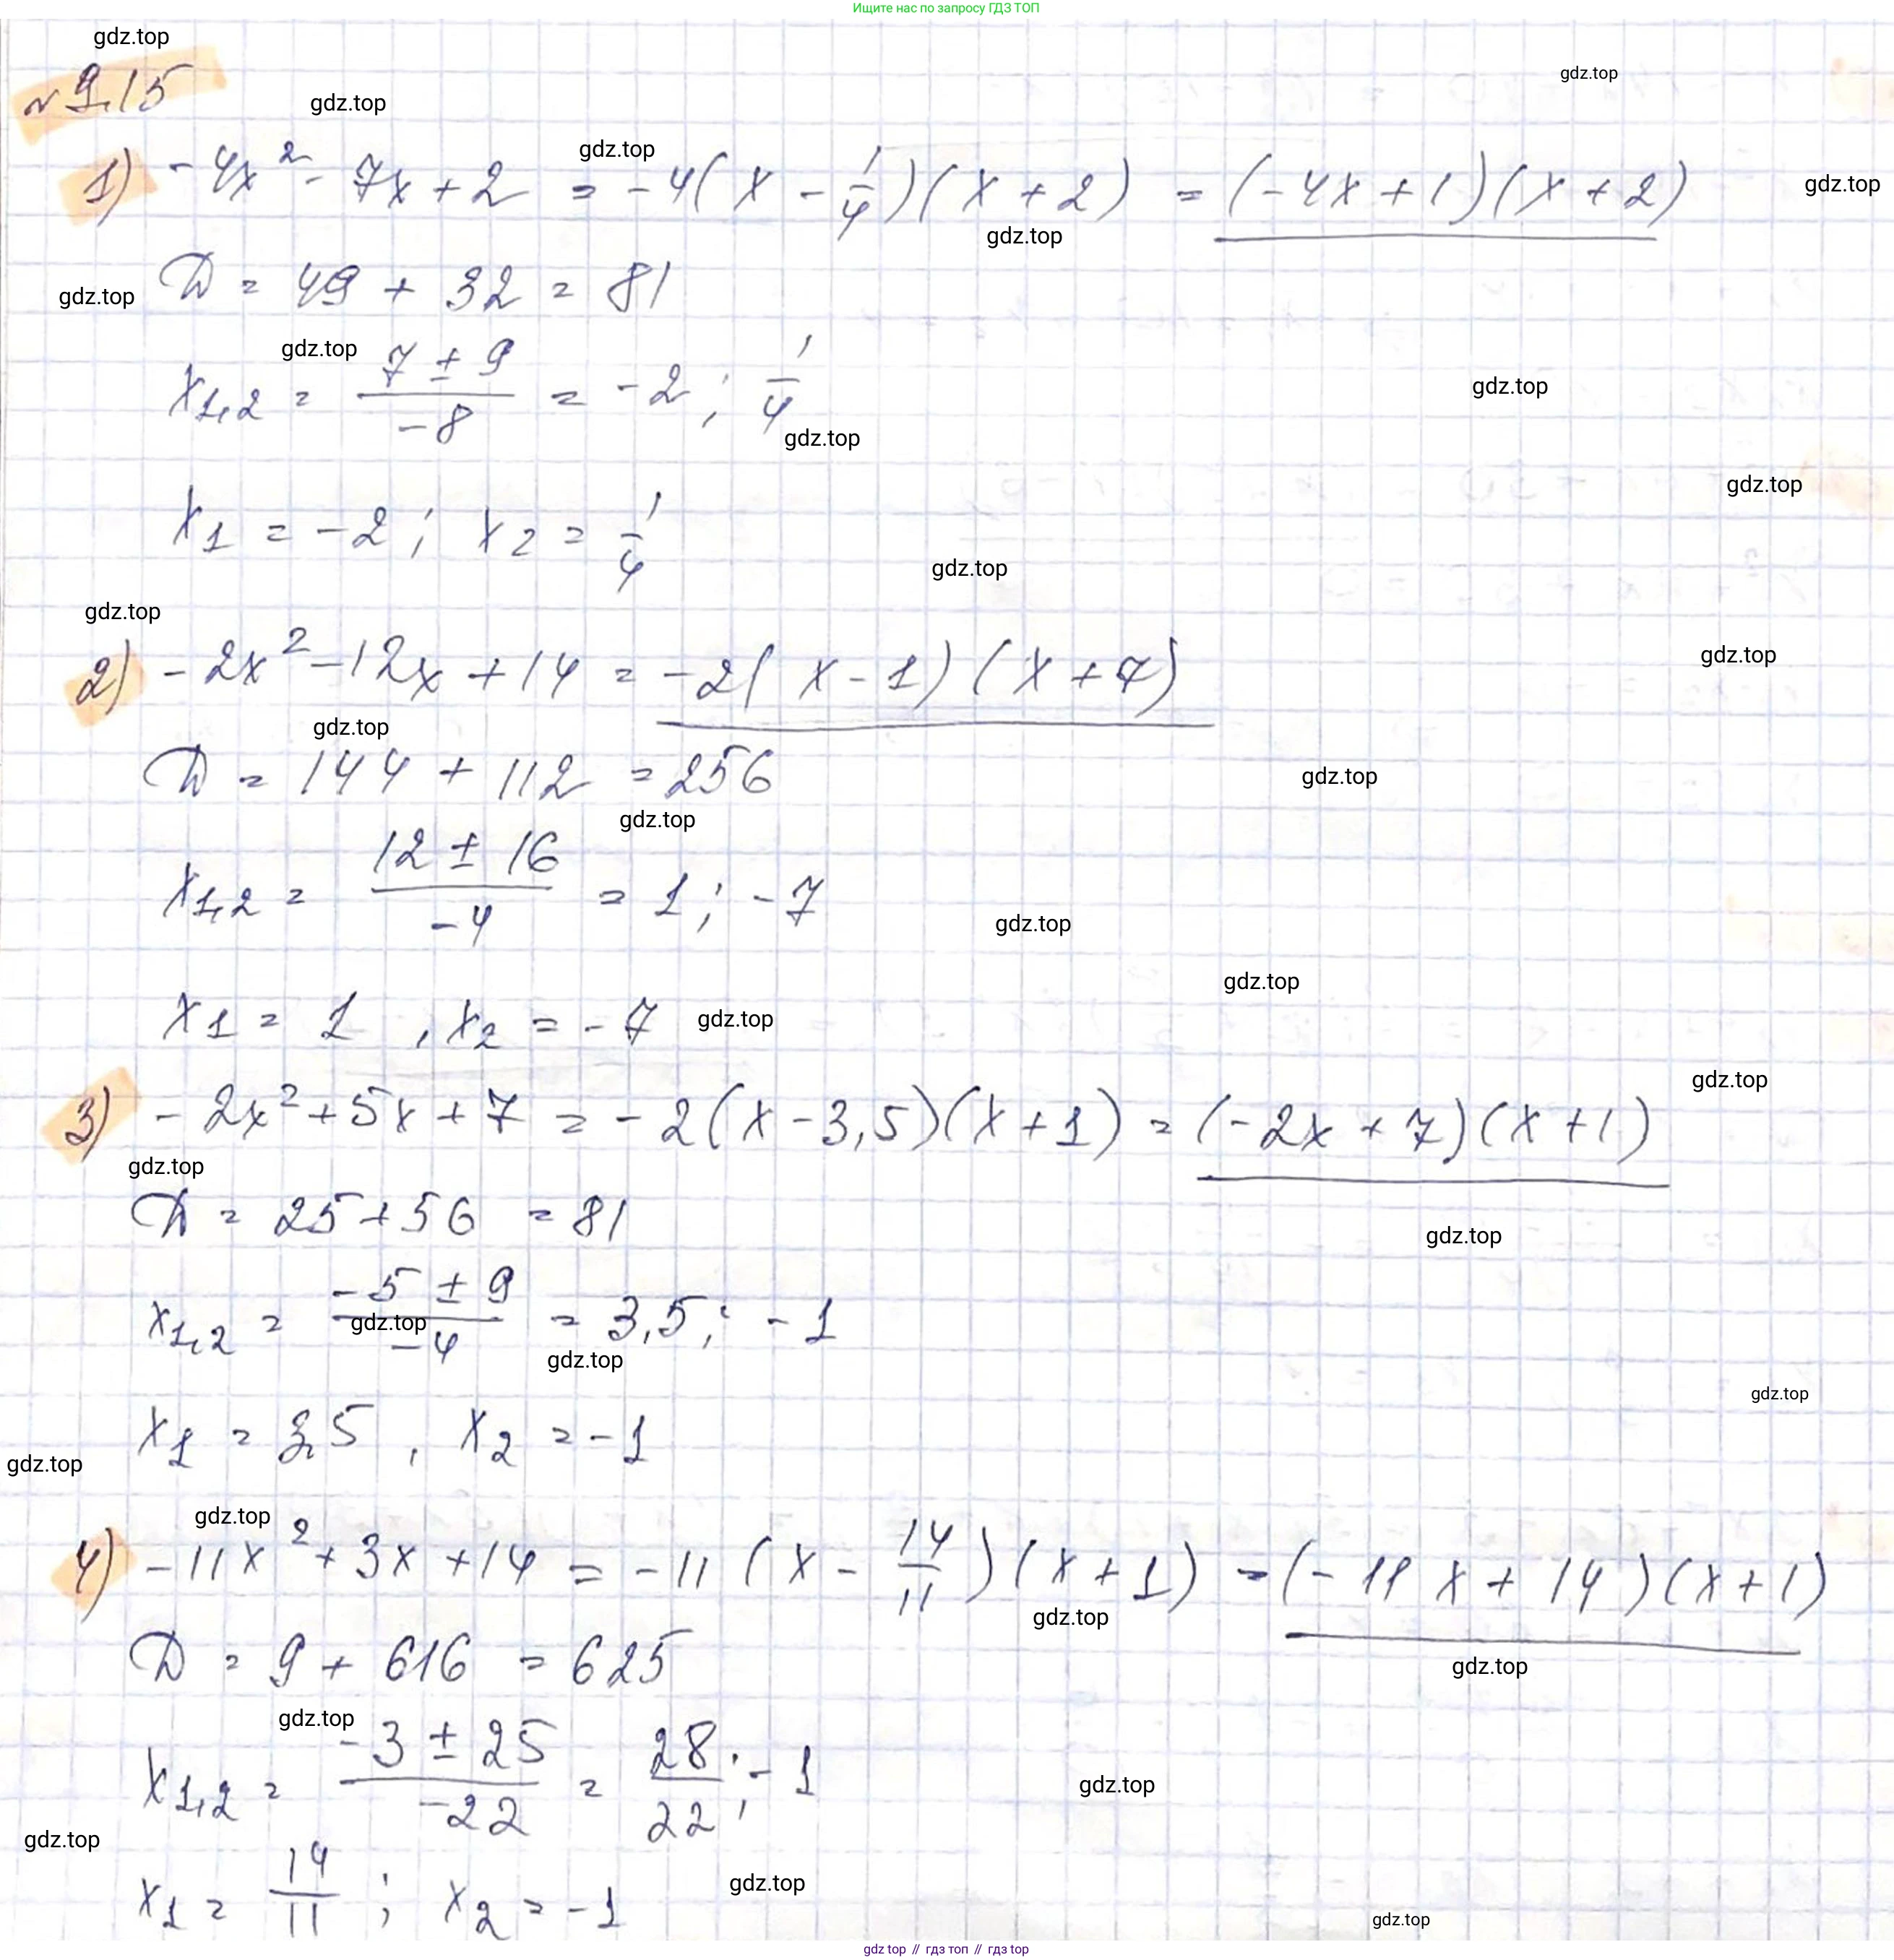 Ищите нас по запросу ГДЗ ТОП
gdz.top
№ 9.15
gdz.top
gdz.top
gdz.top
1) -4x² - 7x + 2 = -4(x - 1/4)(x + 2) = (-4x + 1)(x + 2)
gdz.top
gdz.top
D = 49 + 32 = 81
gdz.top
gdz.top
x1,2 = (7 ± 9)/(-8) = -2; 1/4
gdz.top
gdz.top
gdz.top
x1 = -2; x2 = 1/4
gdz.top
gdz.top
2) -2x² - 12x + 14 = -2(x - 1)(x + 7)
gdz.top
gdz.top
D = 144 + 112 = 256
gdz.top
gdz.top
x1,2 = (12 ± 16)/(-4) = 1; -7
gdz.top
gdz.top
x1 = 1, x2 = -7
gdz.top
gdz.top
3) -2x² + 5x + 7 = -2(x - 3,5)(x + 1) = (-2x + 7)(x + 1)
gdz.top
D = 25 + 56 = 81
gdz.top
x1,2 = (-5 ± 9)/(-4) = 3,5; -1
gdz.top
gdz.top
gdz.top
x1 = 3,5, x2 = -1
gdz.top
gdz.top
4) -11x² + 3x + 14 = -11(x - 14/11)(x + 1) = (-11x + 14)(x + 1)
gdz.top
D = 9 + 616 = 625
gdz.top
gdz.top
x1,2 = (-3 ± 25)/(-22) = 28/22; -1
gdz.top
gdz.top
x1 = 14/11; x2 = -1
gdz.top
gdz.top
gdz top // гдз топ // gdz top